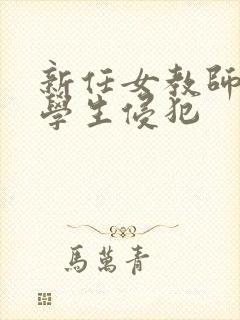 新任女教師
學生侵犯
馬萬青